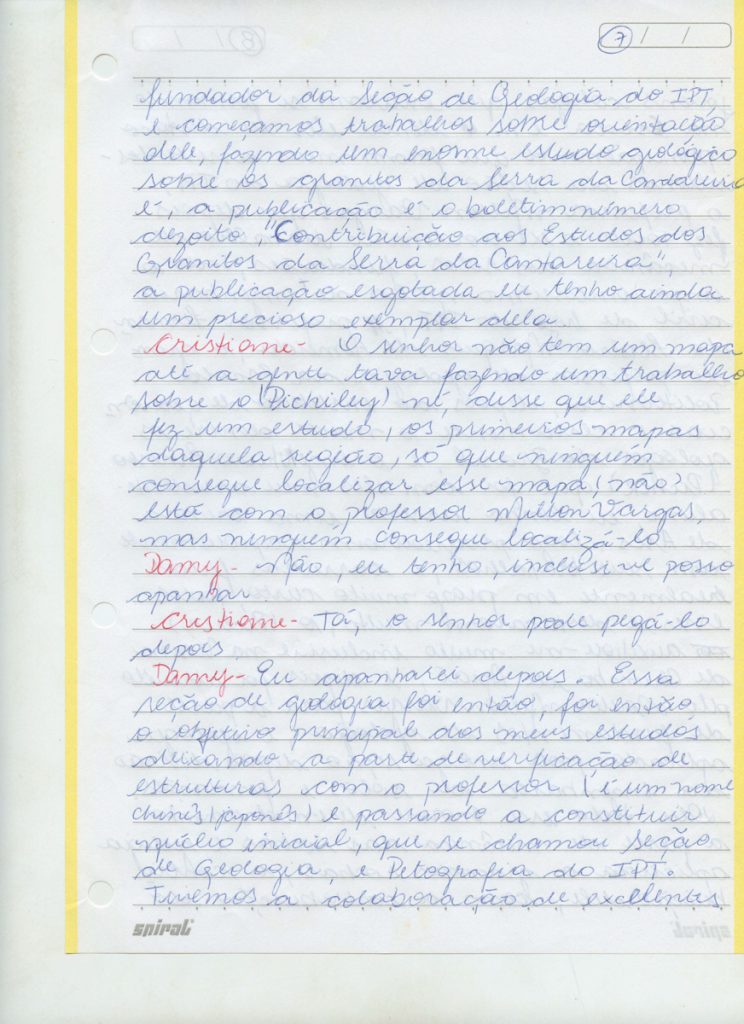 7 / /
fundador da Seção de Geologia do IPT,
e começamos trabalhos sobre orientação
dele, fazendo um enorme estudo geológico
sobre os granitos da Serra da Cantareira
é, a publicação é o boletim número
dezoito, "Contribuição aos Estudos dos
Granitos da Serra da Cantareira",
a publicação esgotada eu tenho ainda
um precioso exemplar dela
Cristiane - O senhor não tem um mapa
até a gente tava fazendo um trabalho
sobre o (Pichiley) né, disse que ele
fez um estudo, os primeiros mapas
daquela região, só que ninguém
consegue localizar esse mapa, não?
está com o professor Milton Vargas,
mas ninguém consegue localizá-lo
Damy - Não, eu tenho, inclusive posso
apanhar
Cristiane - Tá, o senhor pode pegá-lo
depois
Damy - Eu apanharei depois. Essa
seção de geologia foi então, foi então
o objetivo principal dos meus estudos
deixando a parte de verificação de
estruturas com o professor (é um nome
chinês/japonês) e passando a constituir
núcleo inicial, que se chamou Seção
de Geologia, e Petografia do IPT.
Tivemos a colaboração de excelentes
spiral